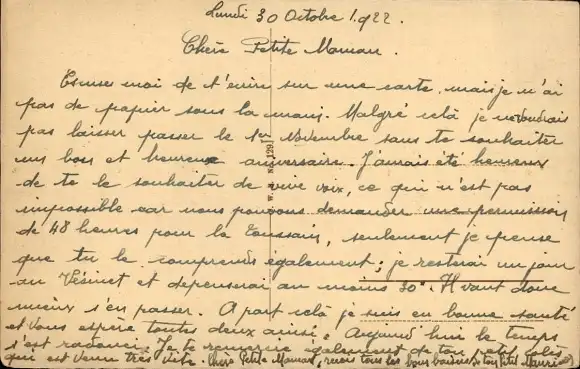 Lundi 30 Octobre 1922.
Chère Petite Maman.
Excuse moi de t'ecrire sur une carte, mais je n'ai
pas de papier sous la main. Malgré celà je ne voudrais
pas laisser passer le 1er Novembre sans te souhaiter
un bon et heureux aniversaire. J'amais été heureux
de te le souhaiter de vive voix, ce qui n'est pas
impossible car nous pouvons demander une permission
de 48 heures pour la Toussain, seulement je pense
que tu le comprends également; je restrai un jour
au Vésinet et depenserai au moins 30. Il vaut donc
mieux s'en passer. A part celà je suis en bonne santé
et vous espère toutes deux ainsi. Aujourd'hui le temps
s'est radouci. Je te remercie également de ton petit colis
qui est venu très vite. Chère Petite Maman, reçois tous les bons baisers de ton Petit Maurice